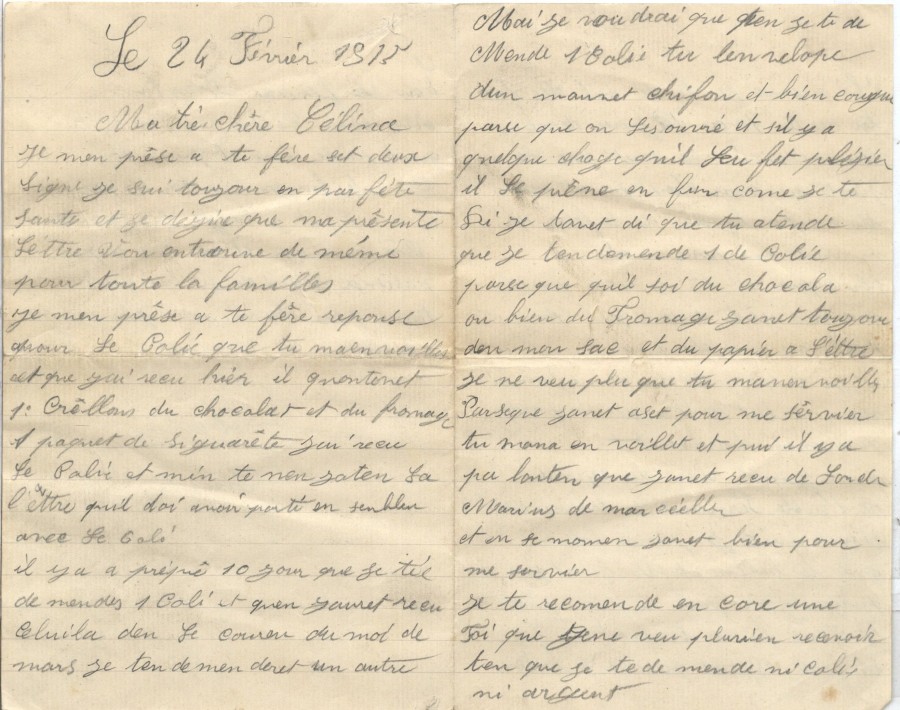 Le 24 Février 1915
Ma trè chêre Célina
Je men prêse a te fére set deux
signe je sui toujour en par féte
santé et je désire que ma présente
lêttre vou ontrouve de mémé
pour toute la familles
je men prêse a te fêre reponse
quour le Colié que tu maenvoilles
et que jai recu hier il quontenet
1: Crêllons du chocolat et du fromage
1 paquet de siguarête jai recu
le Colié et min te nen jaten la
l'êttre quil doi avoir parti en senblen
avec le Coli
il ya a préprê 10 jour que je té
de mendes 1 Coli et quen jauret recu
Celuila den le couren du moi de
mars je ten demenderet un autre
Mai je voudrai que qen je te de
Mende 1 Colié tu lenvelope
dun mauvet chifon et bien cougue
parse que on les ouvré et sil y a
quelque choge quil leu fet plézier
il le prêne en fin come je te
lé je lavet di que tu atende
que je tendemende 1 de Colié
parse que quil soi du chocola
ou bien du Fromage janet toujour
den mon sac et du papier a l'éttre
Je ne veu plu que tu manenvoille
Parseque janet aset pour me sêrvier
tu mana en voillet et pui il ya
pa lonten que janet recu de
Marius de marcéelle
et en se momen janet bien pour
me servier
je te recomende en core une
foi que je ne veu plurien recevoir
ten que je te de mende ni colis
ni argent